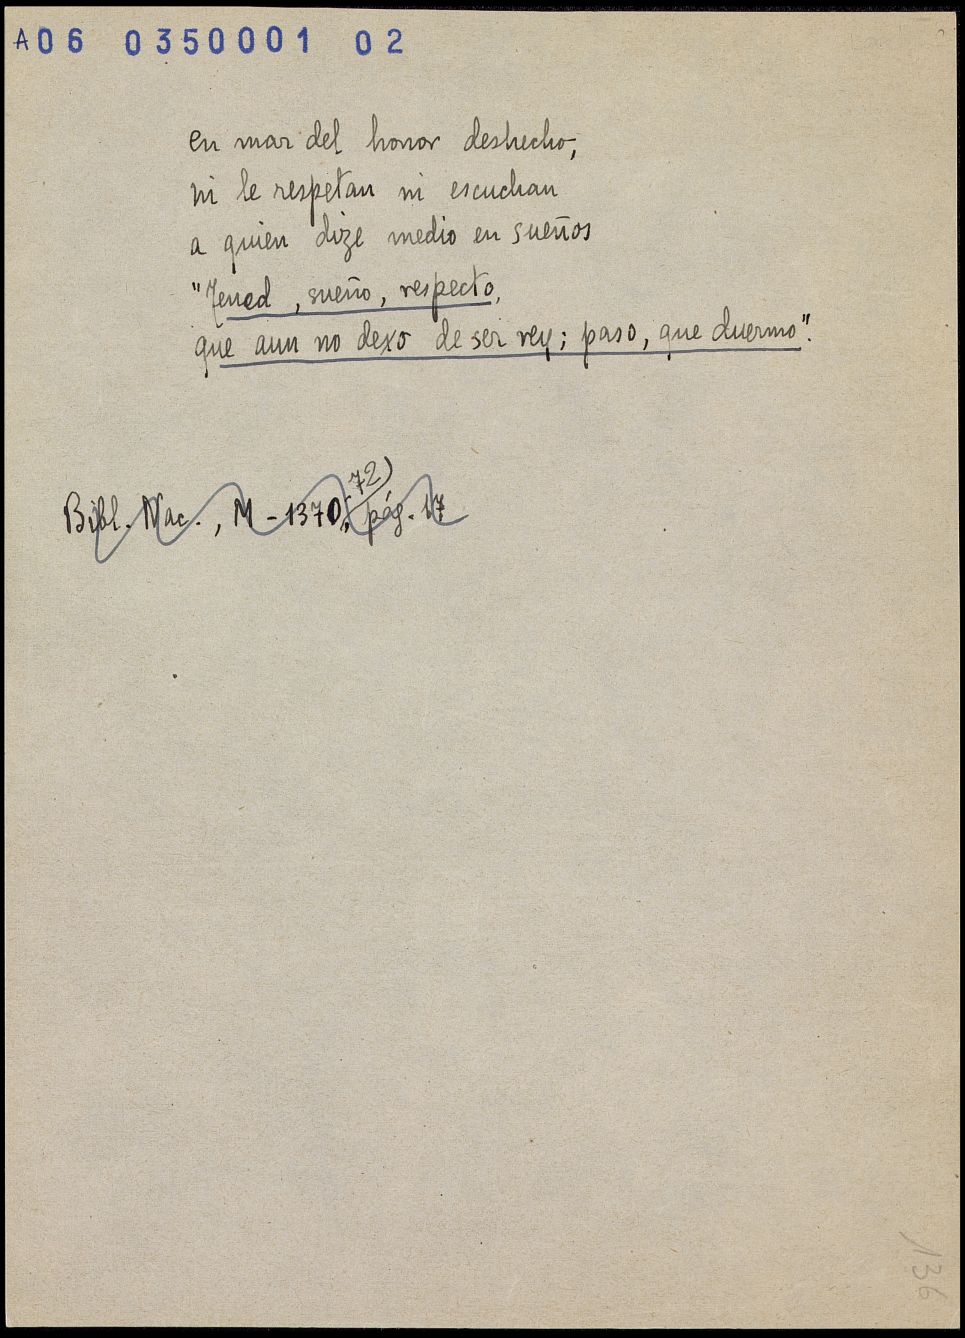 A06 0350001 02
en mar del honor deshecho,
ni le respetan ni escuchan
a quien dize medio en sueños
"Tened, sueño, respecto,
que aun no dexo de ser rey; paso, que duermo".
72)
Bibl. Nac., M-1370, pág. 17
136